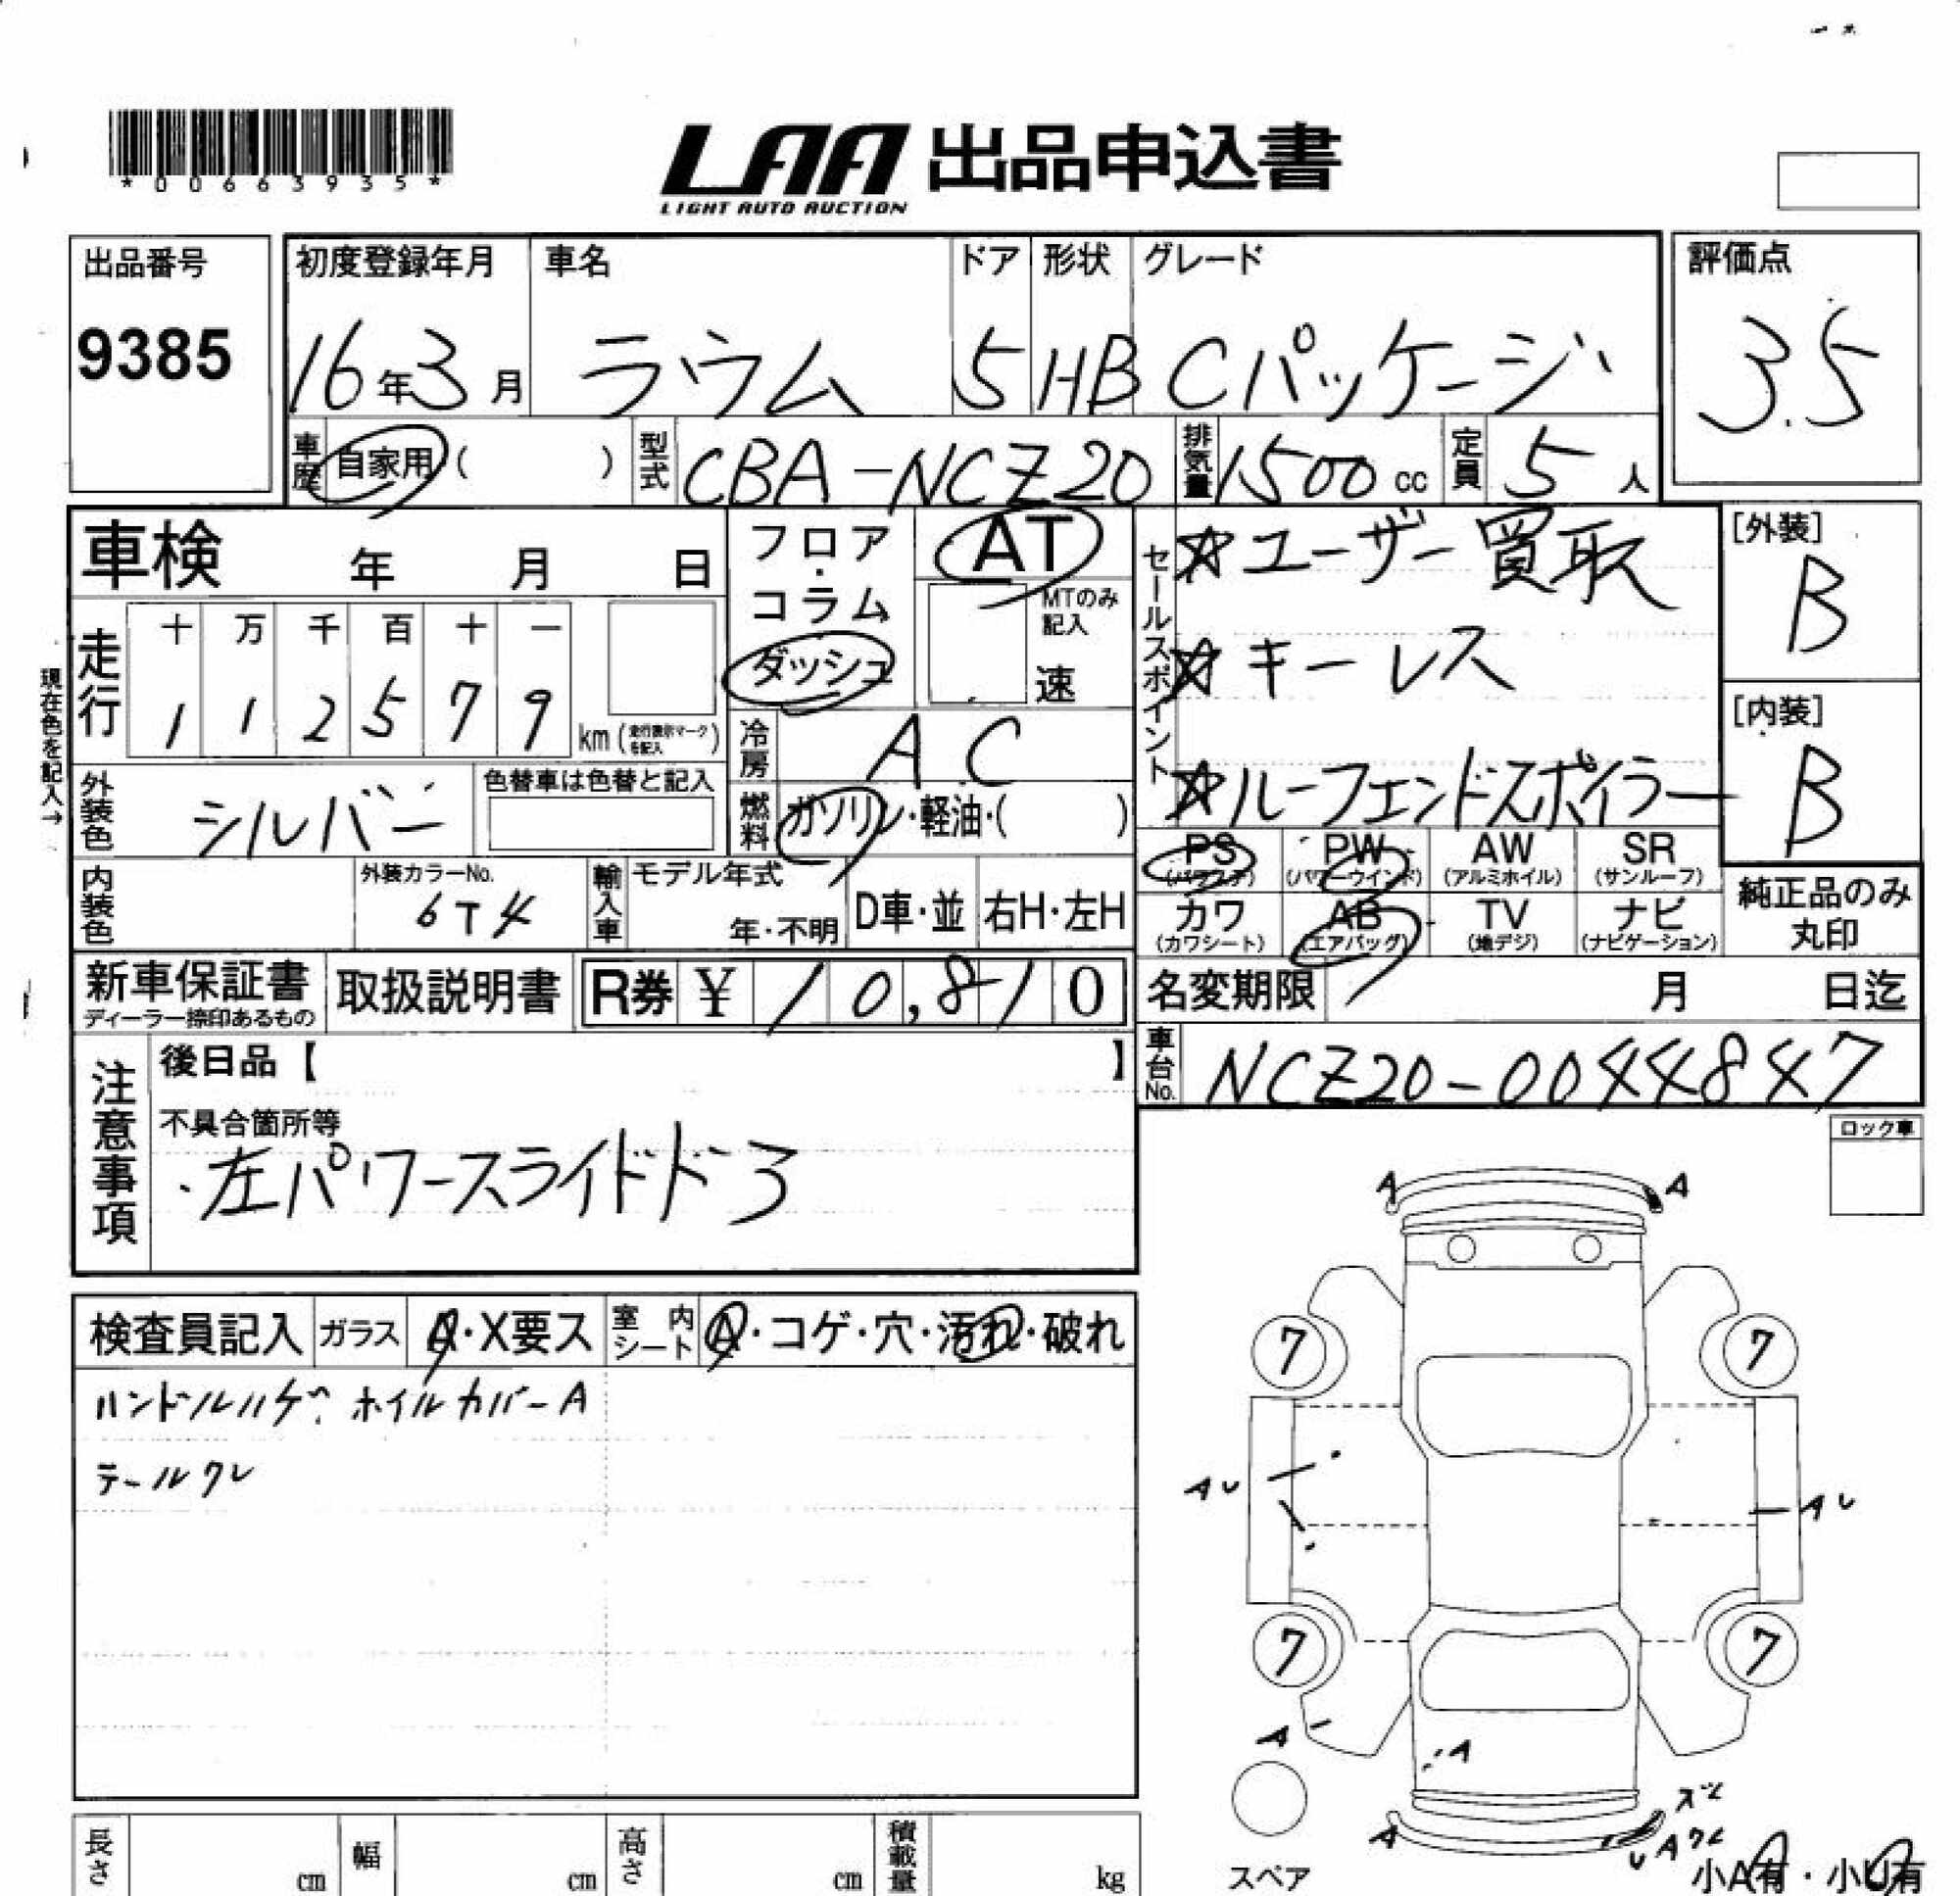 *00663935*
LAA 出品申込書
LIGHT AUTO AUCTION
出品番号
9385
初度登録年月
16年3月
車名
ラウム
ドア
5
形状
HB
グレード
Cパッケージ
評価点
3.5
車歴
自家用( )
型式
CBA-NCZ20
排気量
1500 cc
定員
5 人
車検 年 月 日
フロア・コラム
ダッシュ
AT
MTのみ記入
速
セールスポイント
☆ユーザー買取
☆キーレス
☆ルーフエンドスポイラー
[外装]
B
[内装]
B
現在色を記入→
走行
十 万 千 百 十 一
1 1 2 5 7 9
km(走行表示マークを記入)
冷房
AC
燃料
ガソリン・軽油・( )
外装色
シルバー
色替車は色替と記入
内装色
外装カラーNo.
6T4
輸入車
モデル年式
年・不明
D車・並
右H・左H
PS
(パワステ)
PW
(パワーウインド)
AW
(アルミホイル)
SR
(サンルーフ)
カワ
(カワシート)
AB
(エアバッグ)
TV
(地デジ)
ナビ
(ナビゲーション)
純正品のみ
丸印
新車保証書
ディーラー捺印あるもの
取扱説明書
R券 ¥ 10,810
名変期限 月 日迄
車台No.
NCZ20-0044847
注意事項
後日品【 】
不具合箇所等
・左パワースライドドア
ロック車
検査員記入
ガラス
A・X要ス
室内シート
A・コゲ・穴・汚れ・破れ
ハンドルハゲ ホイルカバーA
テールワレ
A A
7 7
AU AU
7 7
A
A
A
スレ
UAワレ
スペア
小A有・小U有
長さ cm
幅 cm
高さ cm
積載量 kg